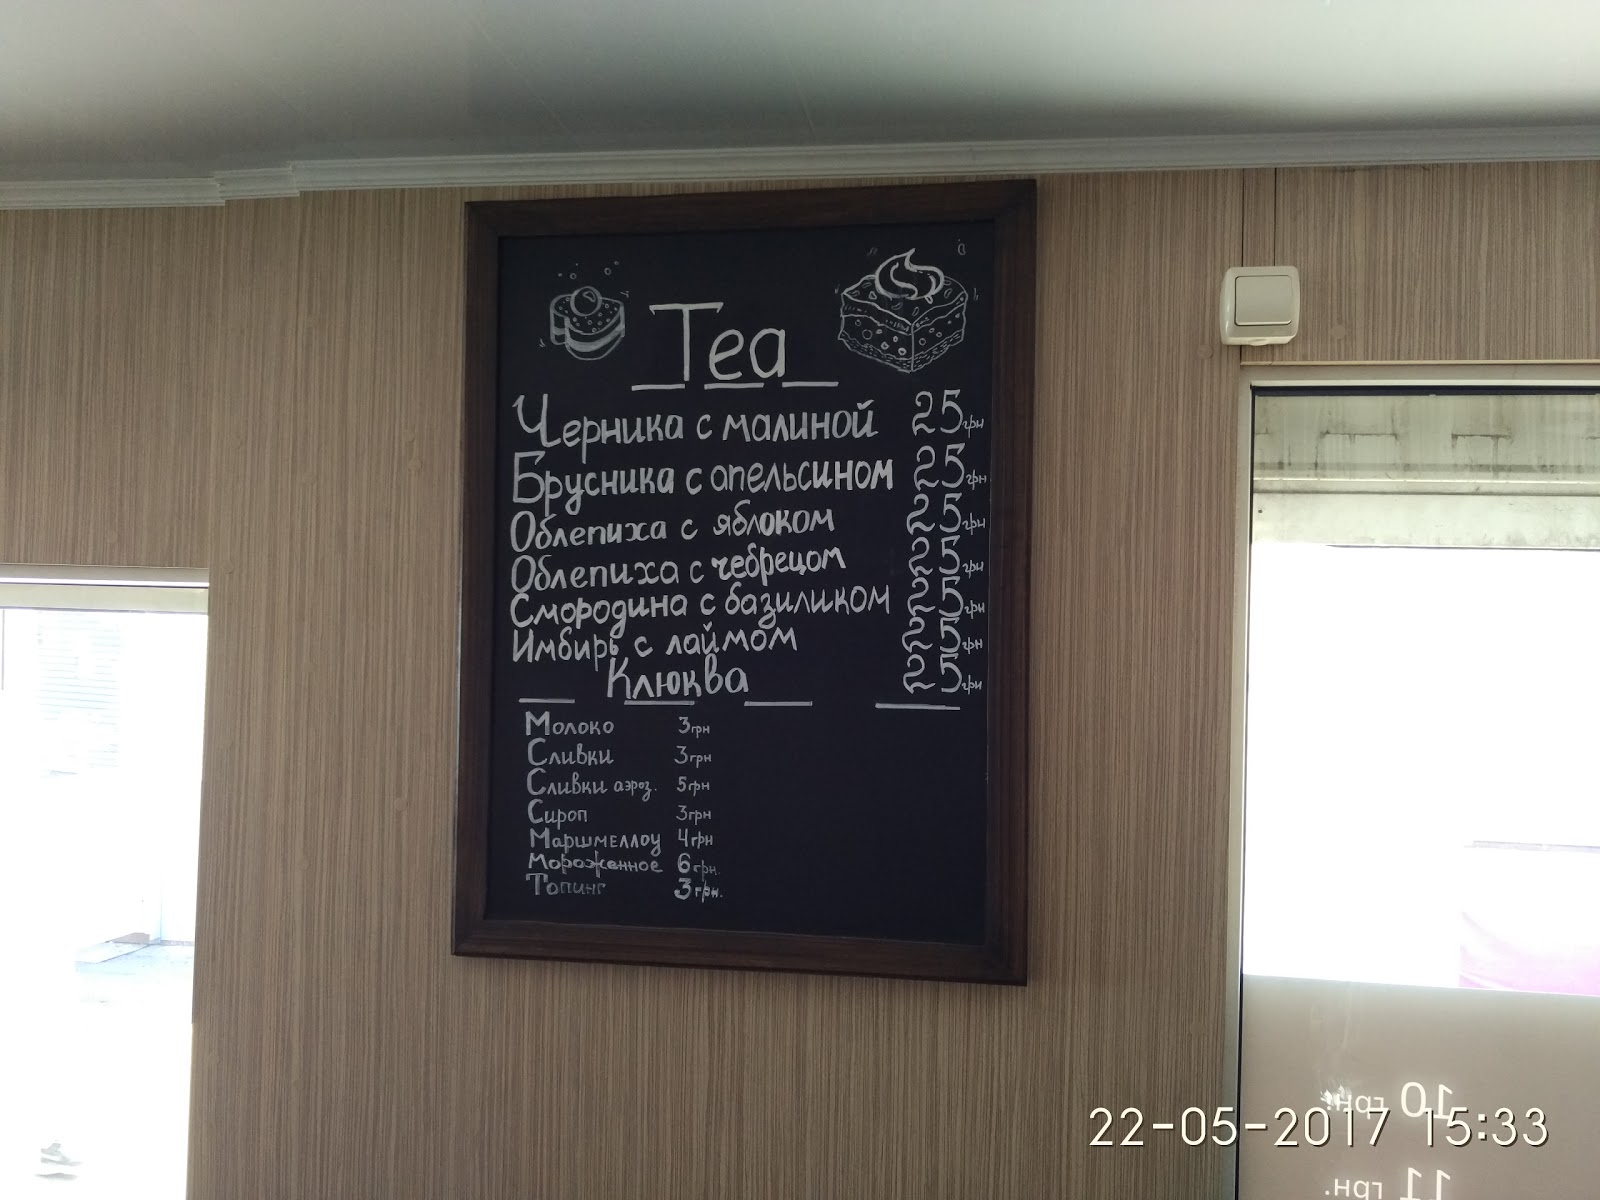 Tea
Черника с малиной 25 грн
Брусника с апельсином 25 грн
Облепиха с яблоком 25 грн
Облепиха с чебрецом 25 грн
Смородина с базиликом 25 грн
Имбирь с лаймом 25 грн
Клюква 25 грн
Молоко 3 грн
Сливки 3 грн
Сливки аэроз. 5 грн
Сироп 3 грн
Маршмеллоу 4 грн
Мороженное 6 грн.
Топинг 3 грн.
10 грн.
22-05-2017 15:33
11 грн.